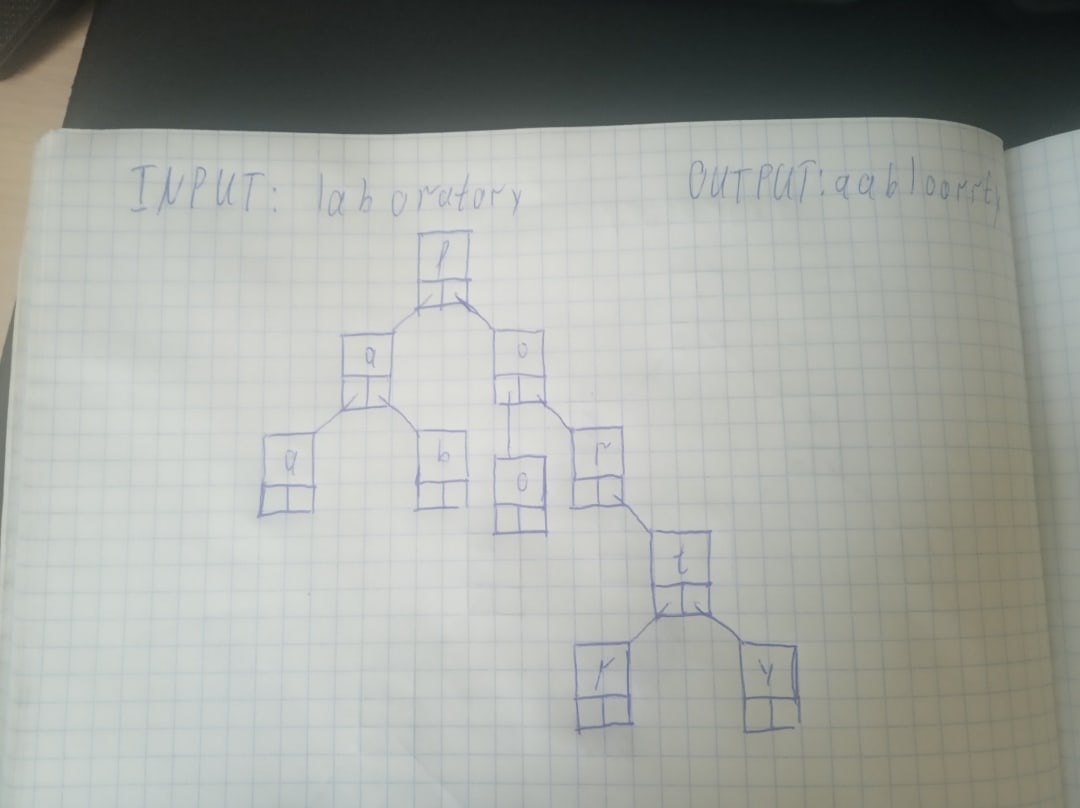 INPUT: laboratory OUTPUT: aabloorrty
l
a o
a b o r
t
r y